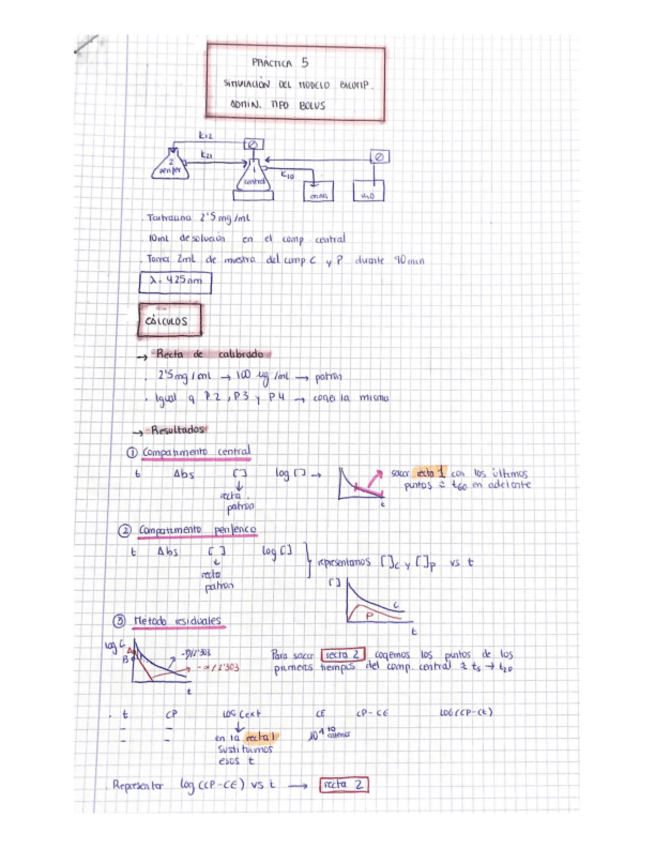 PRÁCTICA 5
SIMULACIÓN DEL MODELO BICOMP.
ADMIN. TIPO BOLUS
K12
K21
2
perifer
1
central
K10
H2O
. Tartracina 2'5 mg/mL
10mL de solución en el comp central
. Toma 2mL de muestra del comp C y P durante 90 min
λ = 425 nm
CÁLCULOS
→ Recta de calibrado
. 2'5 mg/mL → 100 ug/mL → patrón
. Igual q P.2, P3 y P4 → coger la misma
→ Resultados
① Compartimento central
t Abs [ ] log [ ] →
recta
patrón
t
sacar recta 1 con los últimos
puntos ≈ t60 en adelante
② Compartimento periférico
t Abs [ ] log [ ]
recta
patrón
representamos [ ]c y [ ]p vs t
[ ]
C
P
t
③ Método residuales
log C
A
B
-β/2'303
-α/2'303
t
Para sacar recta 2 cogemos los puntos de los
primeros tiempos del comp. central ≈ t5 → t20
. t CP LOG Cext CE CP-CE LOG(CP-CE)
en la recta 1
sustituimos
esos t
. Representar log (CP-CE) vs t → recta 2